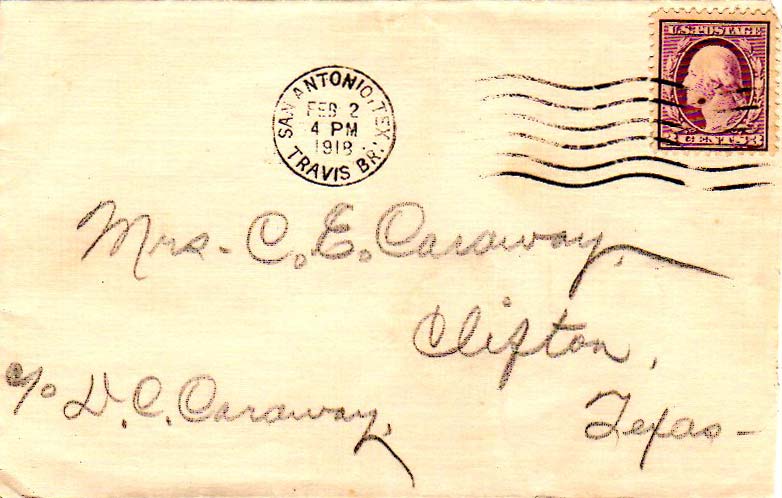 U.S. POSTAGE
3 CENTS 3
SAN ANTONIO, TEX.
FEB 2
4 PM
1918
TRAVIS BR.
Mrs. C. E. Caraway,
Clifton,
Texas-
c/o D. C. Caraway,